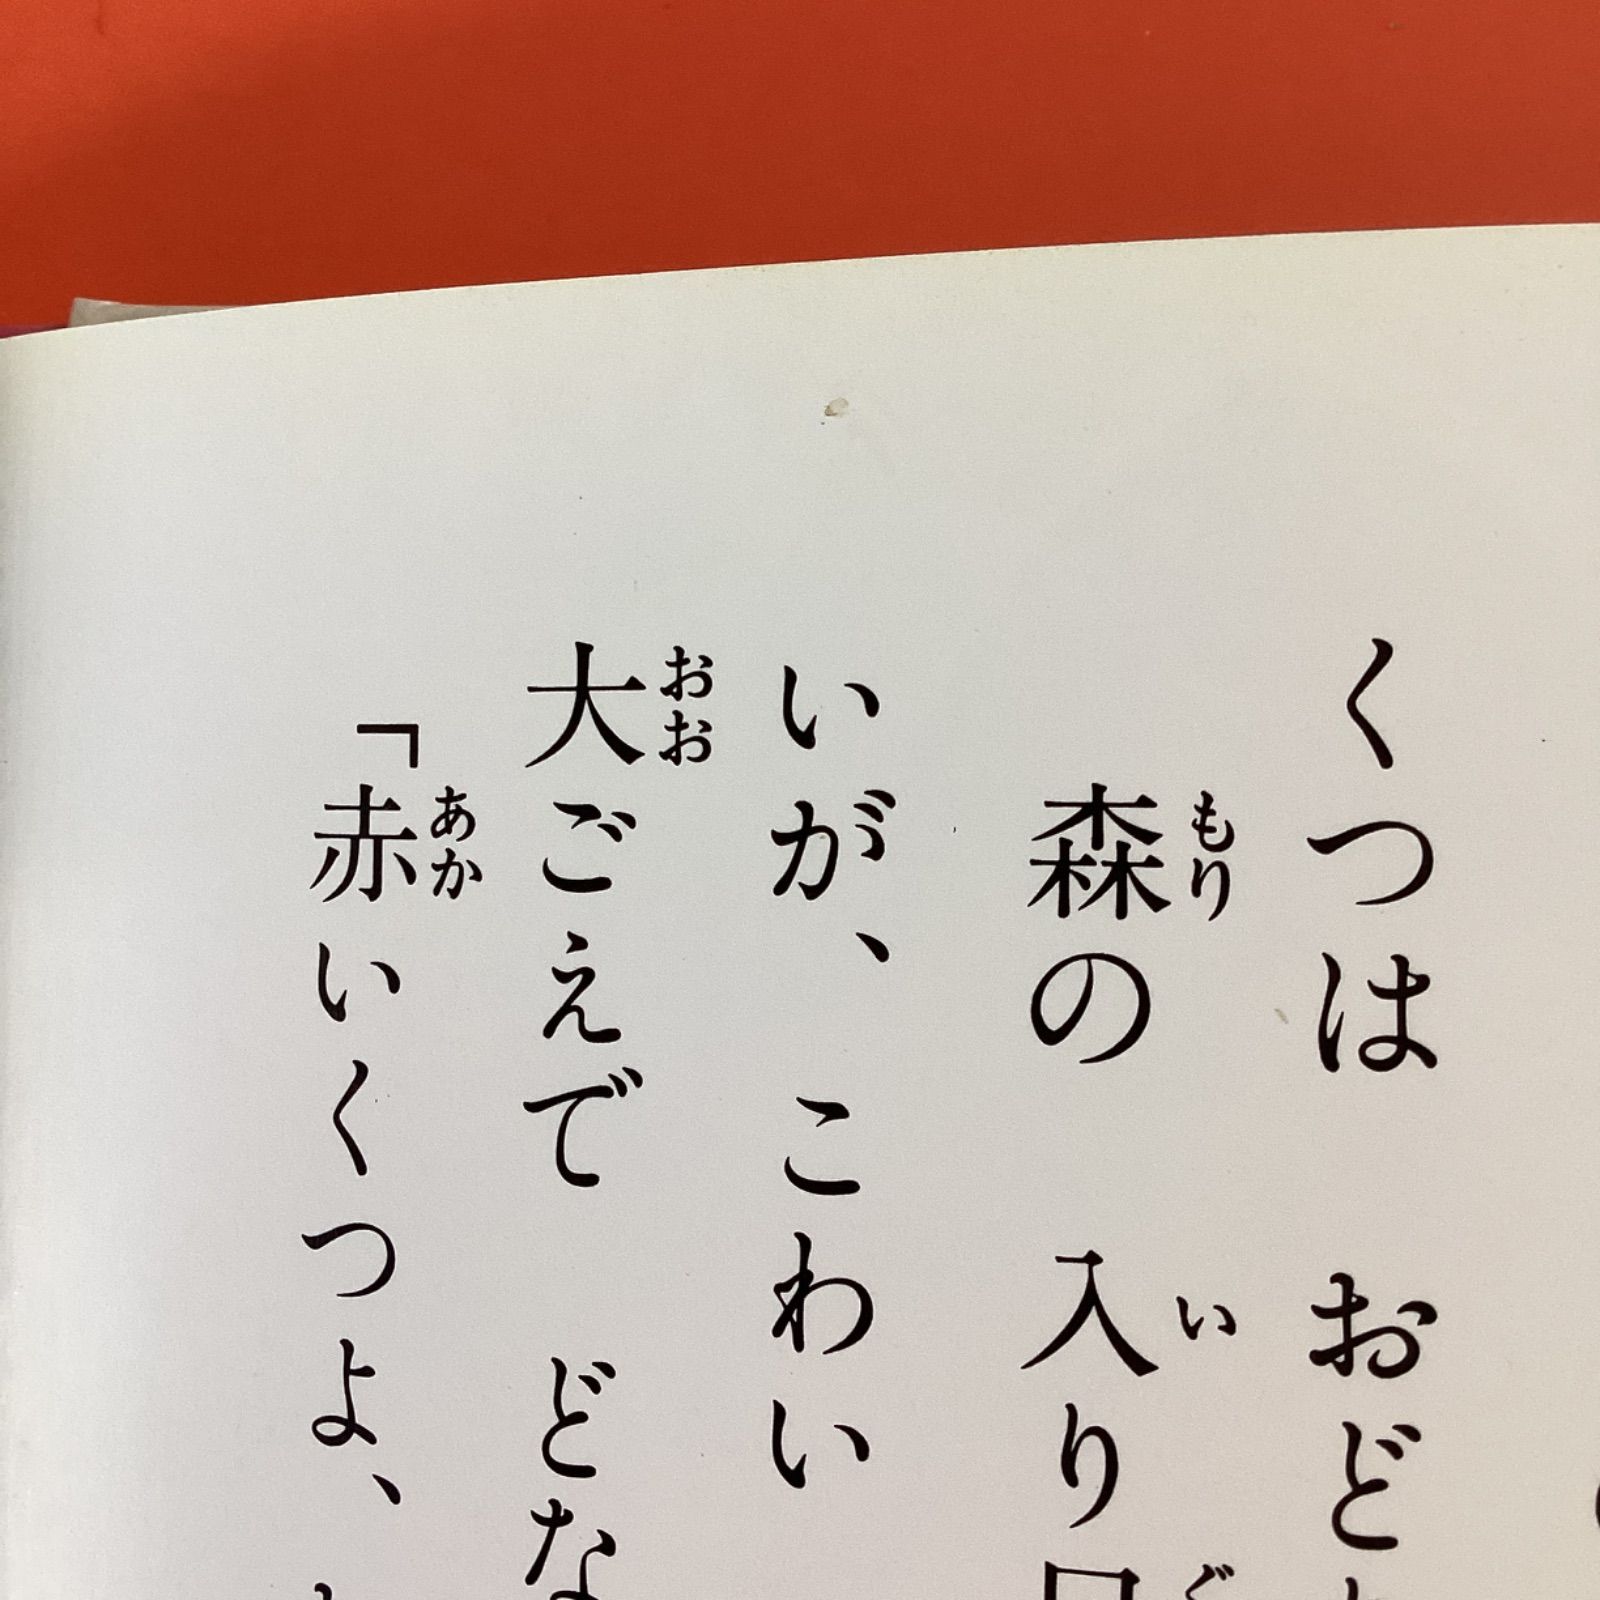 くつは　おど
森の　入り口
いが、　こわい
大ごえで　どな
「赤いくつよ、